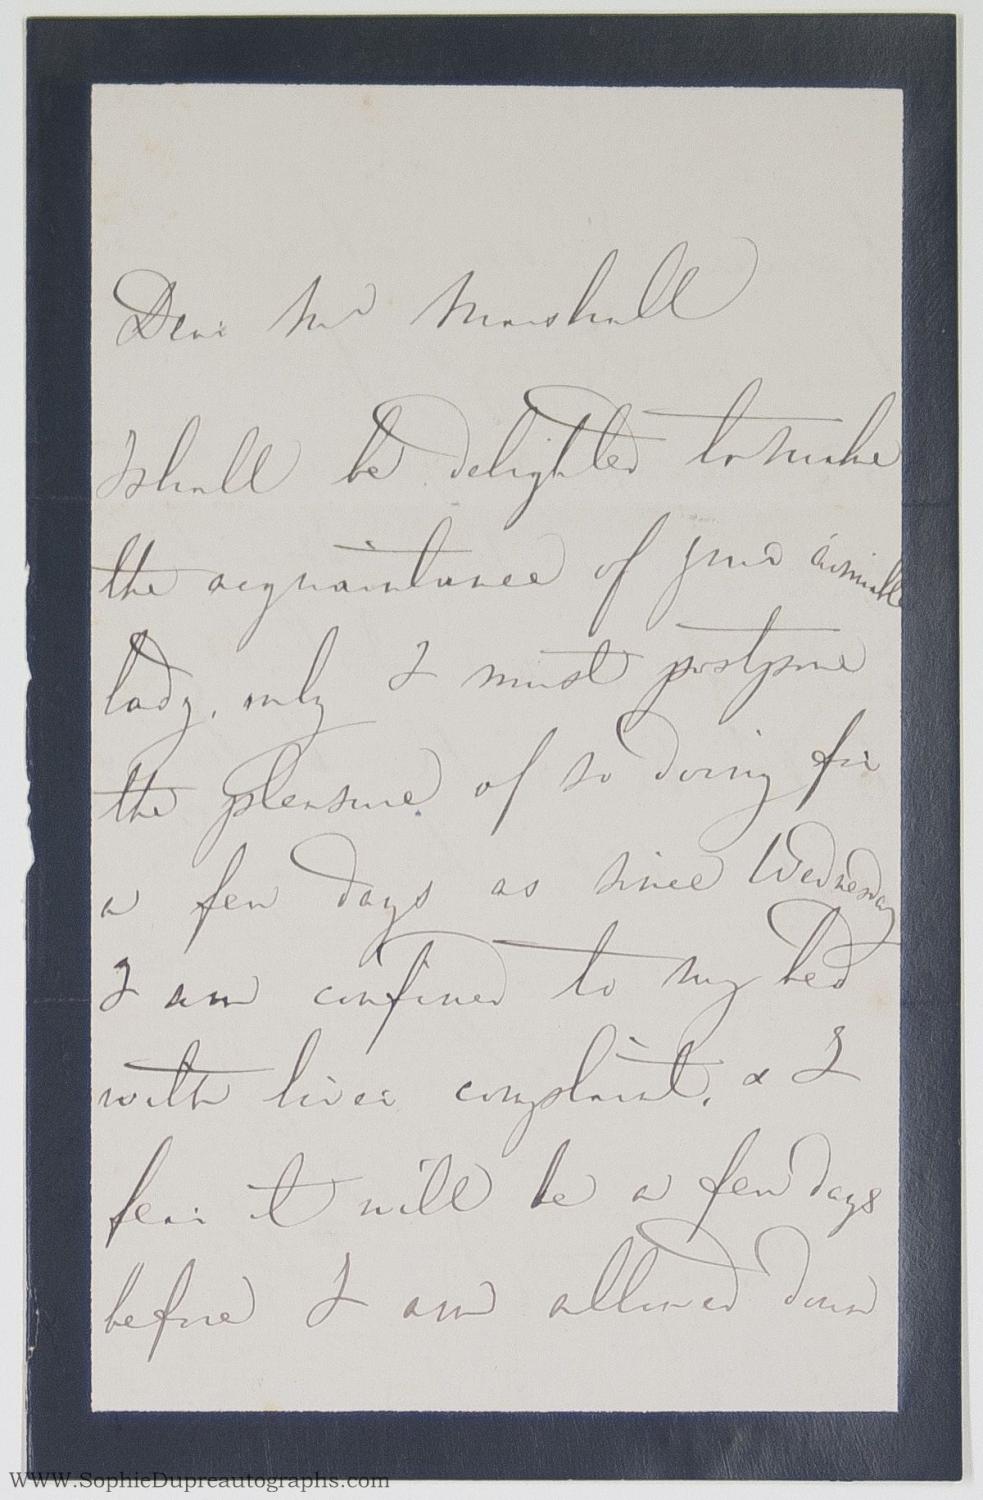 Dear Mr Marshall
I shall be delighted to make
the acquaintance of your amiable
lady, only I must postpone
the pleasure of so doing for
a few days as since Wednesday
I am confined to my bed
with liver complaint, & I
fear it will be a few days
before I am allowed down
WWW.SophieDupreautographs.com